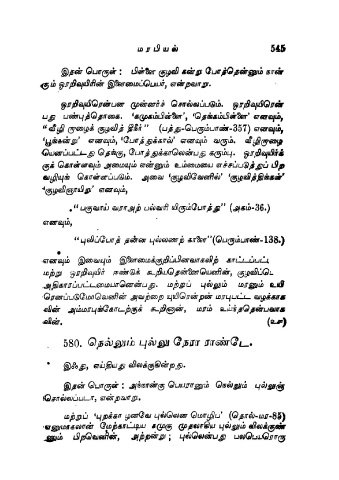 மரபியல் 545
இதன் பொருள் : பிள்ளை குழவி கன்று போத்தென்னும் நான்
கும் ஓரறிவுயிரின் இளமைப்பெயர், என்றவாறு.
ஓரறிவுயிரென்பன முன்னர்ச் சொல்லப்படும். ஓரறிவுயிரென்
பது பண்புத்தொகை. 'கமுகம்பிள்ளை', 'தெங்கம்பிள்ளை' எனவும்,
"வீழி ருழைக் குழவித் தீநீர்" (பத்து-பெரும்பாண்-357) எனவும்,
'பூங்கன்று' எனவும், 'போத்துக்கால்' எனவும் வரும். வீழிருழை
யெனப்பட்டது தெங்கு, போத்துக்காலென்பது கரும்பு. ஓரறிவுயிர்க்
குக் கொள்ளவும் அமையும் என்னும் உம்மையை எச்சப்படுத்துப் பிற
வழியுங் கொள்ளப்படும். அவை 'குழவிவேனில்' 'குழவித்திங்கள்'
'குழவிஞாயிறு' எனவும்,
"பகுவாய் வராஅற் பல்வரி யிரும்போத்து" (அகம்-36.)
எனவும்,
"புலிப்போத் தன்ன புல்லணற் காளை"(பெரும்பாண்-138.)
எனவும் இவையும் இளமைக்குறிப்பினவாகலிற் காட்டப்பட்ட
மற்று ஓரறிவுயிர் ஈண்டுக் கூறியதென்னையெனின், குழவிப்பெ
அதிகாரப்பட்டமையானென்பது. மற்றுப் புல்லும் மரனும் உயி
ரெனப்படுமோவெனின் அவற்றை யுயிரென்றன் மரபுபட்ட வழக்காக
லின் அம்மரபுங்கோடற்குக் கூறினான், மரம் உய்ந்ததென்பவாக
லின். (உச)
580. நெல்லும் புல்லு நேரா ராண்டே.
இஃது, எய்தியது விலக்குகின்றது.
இதன் பொருள் : அந்நான்கு பெயரானும் நெல்லும் புல்லுஞ்
சொல்லப்படா, என்றவாறு.
மற்றுப் 'புறக்கா ழனவே புல்லென மொழிப' (தொல்-மர-85)
ஏனுமாகலான் மேற்காட்டிய கமுகு முதலாகிய புல்லும் விலக்குண்
ணும் பிறவெனின், அற்றன்று ; புல்லென்பது பலபெயரொரு